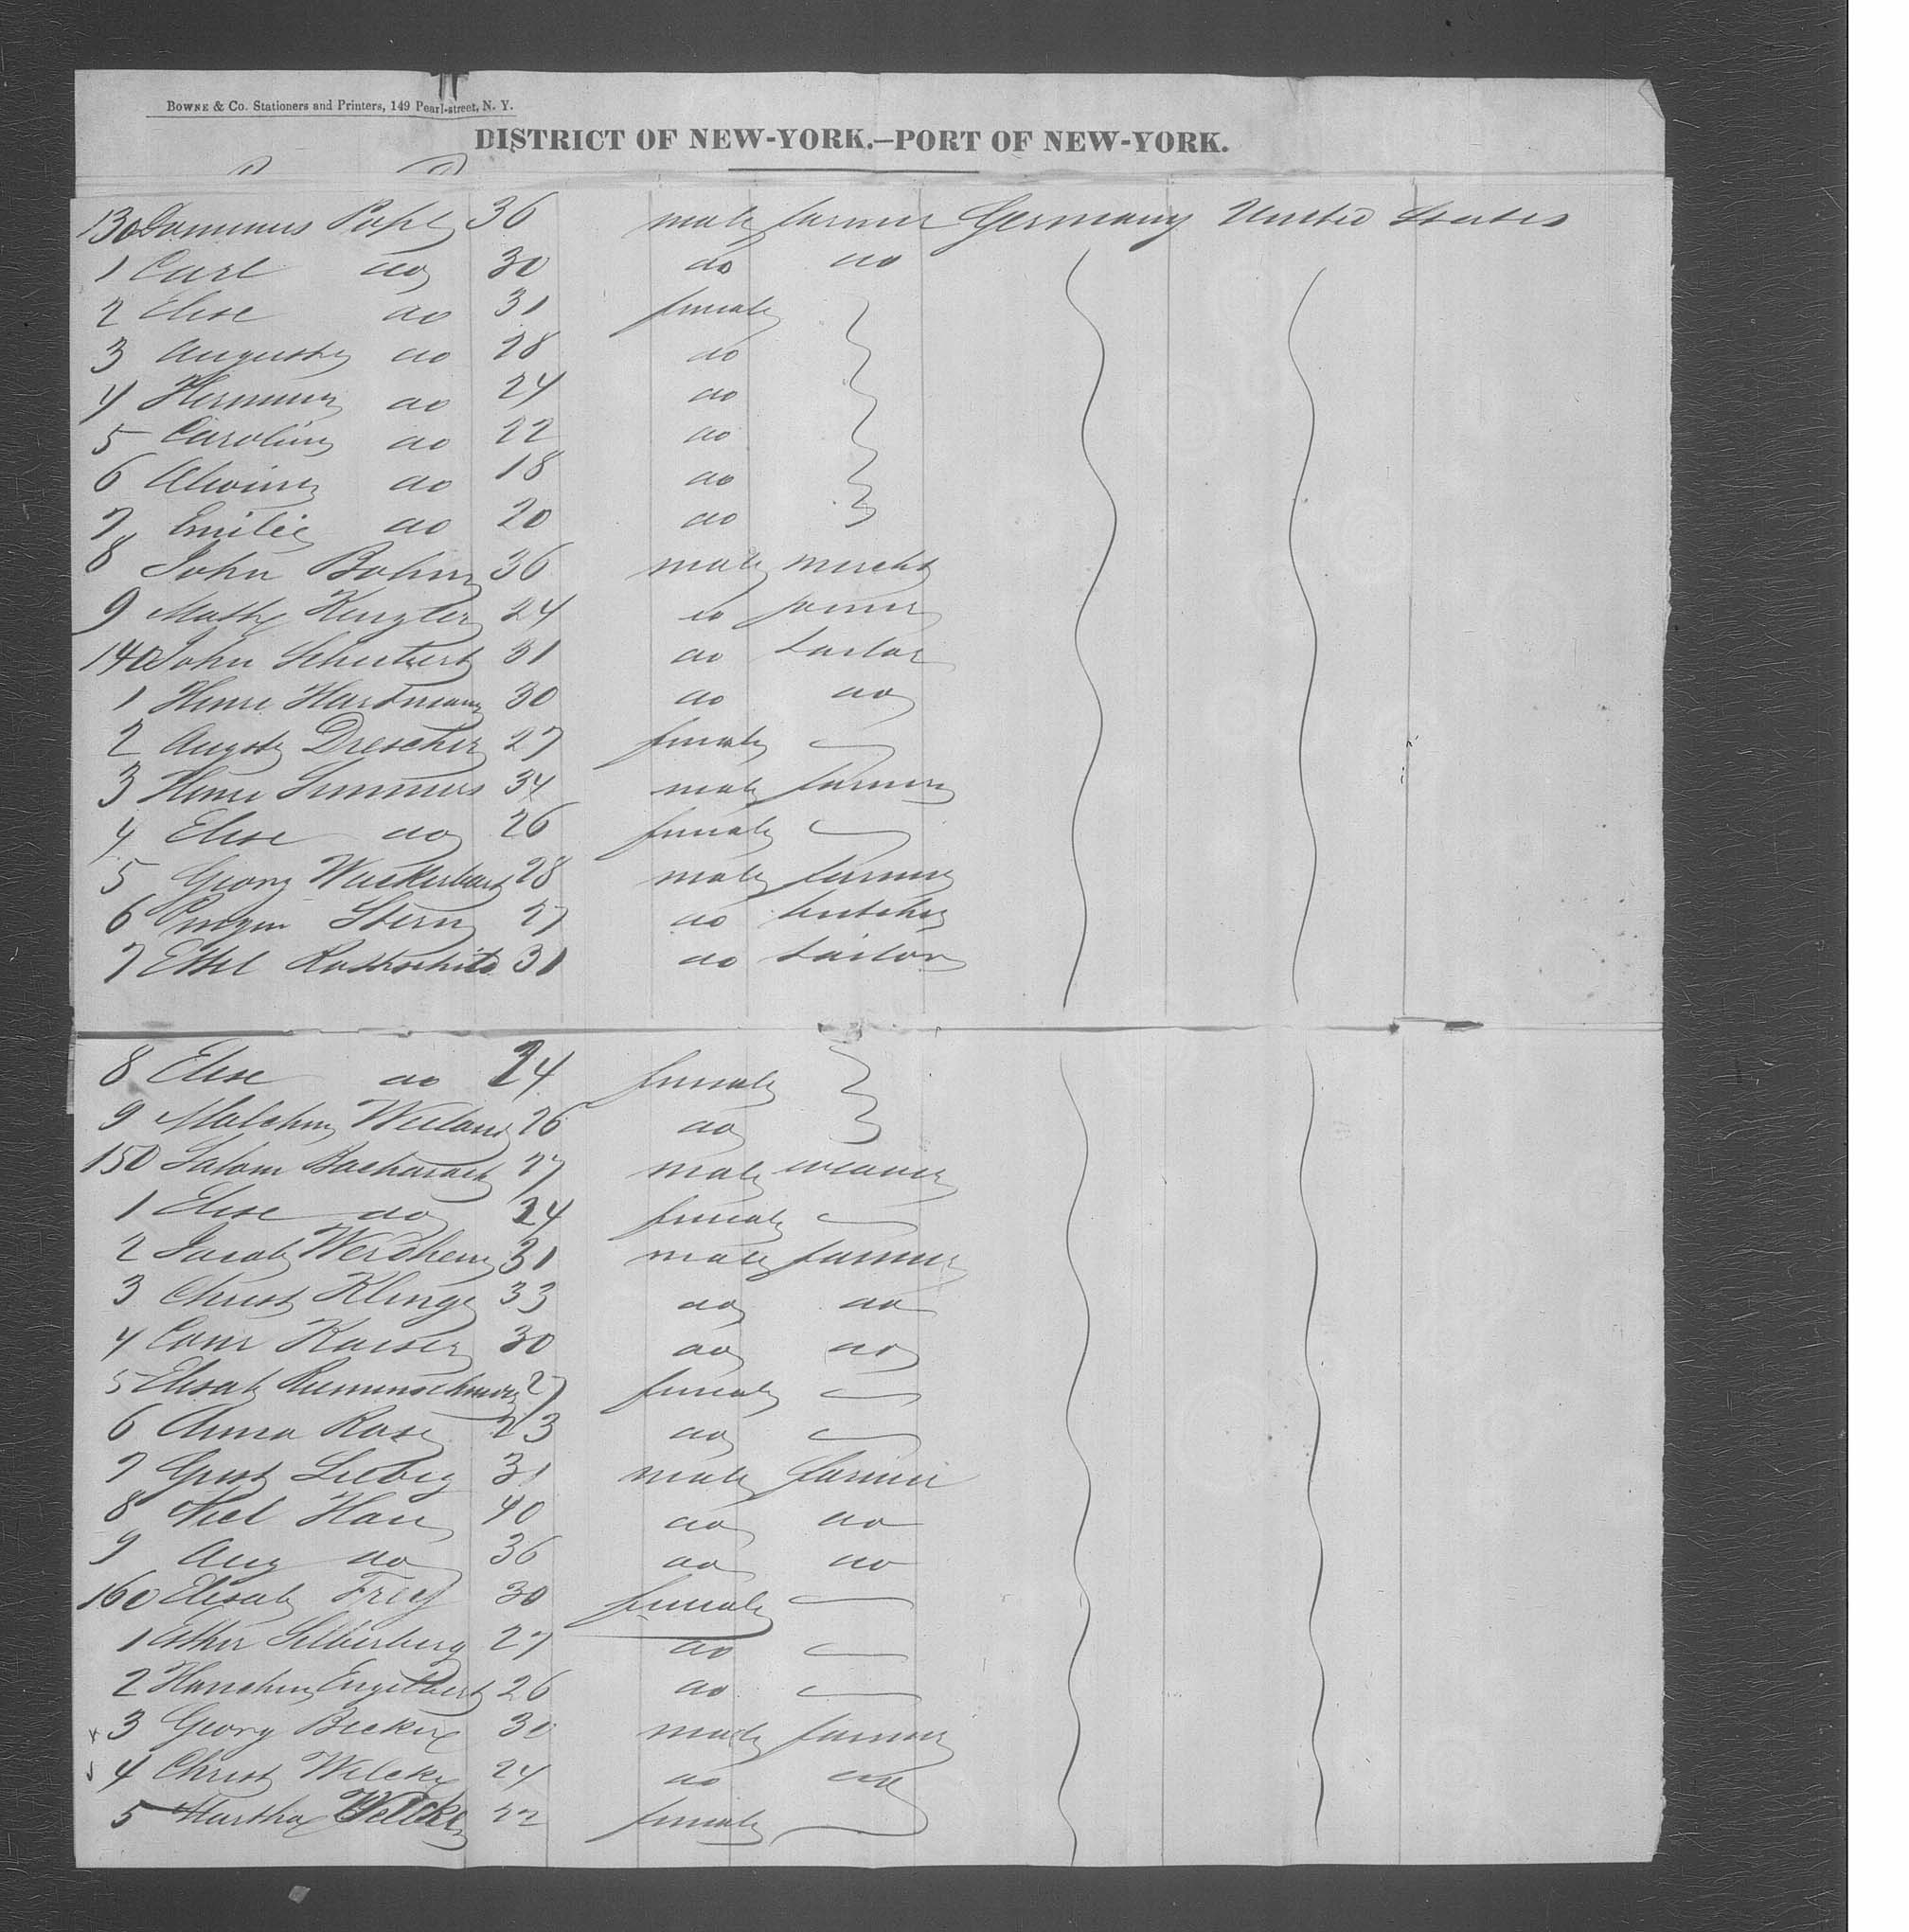 BOWNE & CO. Stationers and Printers, 149 Pearl-street, N. Y.
DISTRICT OF NEW-YORK.—PORT OF NEW-YORK.
130 Pape 36 male farmer Germany United States
1 Carl do 30 do do
2 Elise do 31 female
3 Auguste do 28 do
4 do 24 do
5 Caroline do 22 do
6 Alwine do 18 do
7 Emilie do 20 do
8 John Bohm 36 male mercht
9 Math 24 do
140 John Schubert 31 do tailor
1 Henri Hartmann 30 do do
2 Auguste Drescher 27 female
3 Henri 34 male farmer
4 Elise do 26 female
5 Georg Wackerbart 28 male farmer
6 Stern 27 do butcher
7 Rothschild 31 do tailor
8 Elise do 24 female
9 Malchen 26 do
150 Salom Bacharach 27 male weaver
1 Elise do 24 female
2 Jacob Werdheim 31 male farmer
3 Christ Klinge 33 do do
4 Conr Kaiser 30 do do
5 Elisab 27 female
6 Anna Rose 23 do
7 Gust Liebig 31 male farmer
8 40 do do
9 Aug do 36 do do
160 Elisab Frey 30 female
1 Esther Silberberg 27 do
2 Hanchen Engelbert 26 do
3 Georg Becker 30 male farmer
4 Christ Welcke 24 do do
5 Martha Welcke 22 female